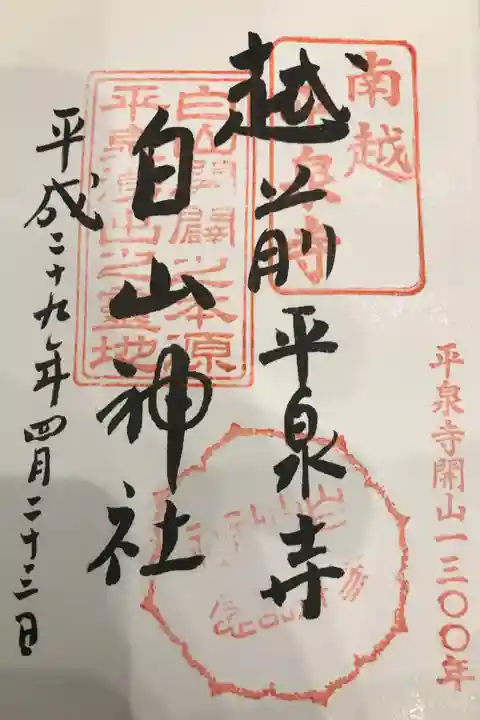 南越
平泉寺
越前平泉寺
白山神社
平成二十九年四月二十三日
白山開闢之本原
平泉湧出之霊地
平泉寺開山一三〇〇年